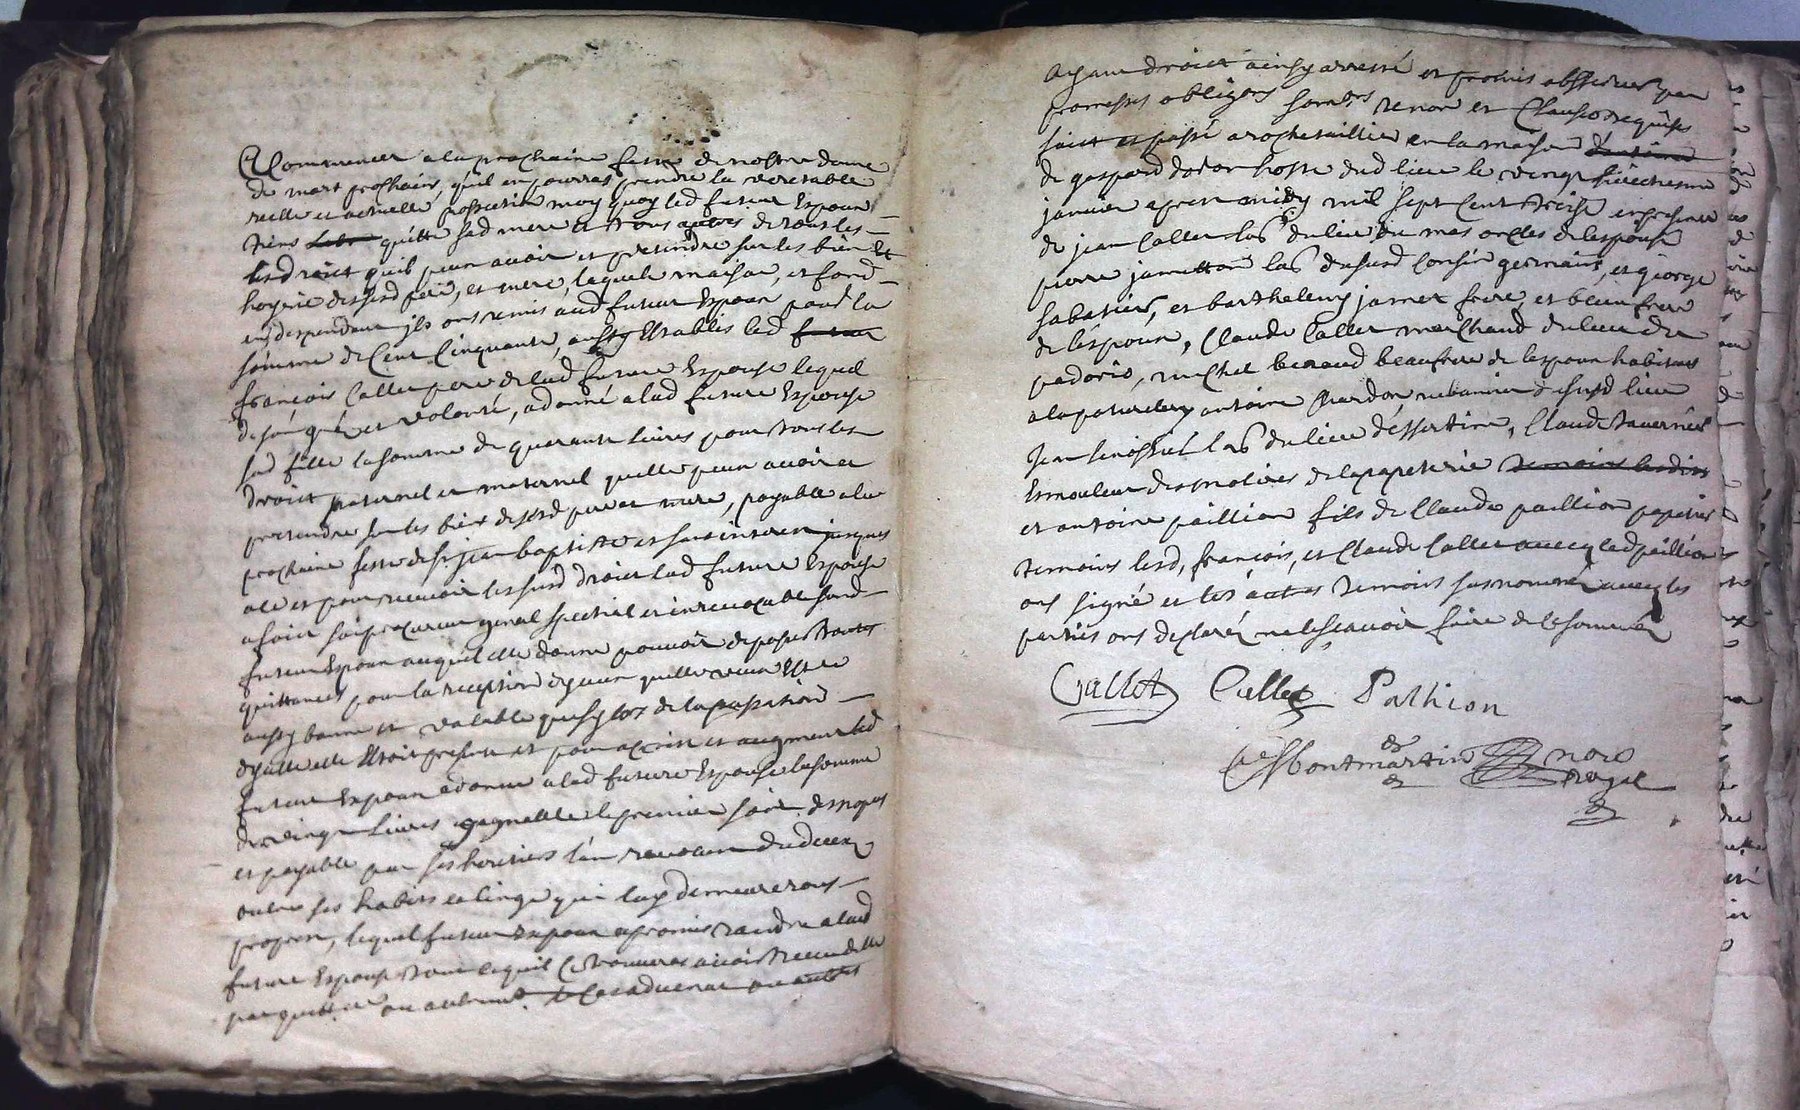 Commencer a la prochaine feste de nostre dame
de mars prochain, quil en pourras prendre la veritable
reelle et actuelle possession moy quoy led futur Espoux
tiens quitte sad mere et tous autres de tous les
lesd droict quil peux avoir et pretendre sur les biens et
hoyrie desdsusd pere, et mere, laquele maison, et fond
en despendant jls ont remis aud futeur Espoux pour la
somme de Cent Cinquante, aussy Establis led futeur
françois Callet pere de lad future Espouse lequel
de son gré et volonté, a donné a lad future Espouse
sad fille la somme de quarante livres pour tous les
droict paternel et maternel quelle peux avoir et
pretendre sur les biens desd pere et mere, payable a la
prochaine feste de st jean baptiste et sans interest jusques
a lé et pour recevoir lessusd droict lad future Espouse
a faict son procureur general special et irrevocable sond
futeur Espoux auquel elle donne pouvoir de passer toutes
quittances pour la reception dyceux quelle veux Estre
aussy bonne et valable que sy lors de la passation
dycelle elle Etoit presente et pour acroist et augment led
futeur Espoux a donné a lad future Espouse la somme
de vingt livres gagnable le premier soir des nopces
et payable par ses heritiers lan revoleu du deceds
outre ses habits et linge qui luy demeureront
propres, lequel futeur Espoux a promis randre a lad
future Espouse tout ce quil ce trouveras avoir receu delle
par quittance ou autrement le Cas advenant ou autres
ayant droict ainsy arresté et promis observer par
promesses obligons serments renon et Clauses requises
faict et passé a rochetaillée en la maison
de gaspard hoste dud lieu le vingt huictiesme
janvier apres midy mil sept Cent treise en presence
de jean Callet lab du lieu du mas oncles de lespouse
pierre lab dususd Consin germains, et george
sabatier, et barthelemy jamet frere, et beau frere
de lespoux, Claude Callet marchand du lieu de
padoris, michel beraud beaufrere de lespoux habitant
a la paturelery antoine Chardon, rubannier dususd lieu
jean lab du lieu dessertine, Claude tavernier
Esmouleur des molieres de la papeterie temoins lesdits
et antoine paillion fils de Claude paillion papetier
temoins lesd, françois, et Claude Callet avecq led paillion
ont signé et les autres temoins susnommés avecq les
parties ont declaré ne le sçavoir faire de ce sommés
Callet Callet Palhion
deMontmartin nore
royal